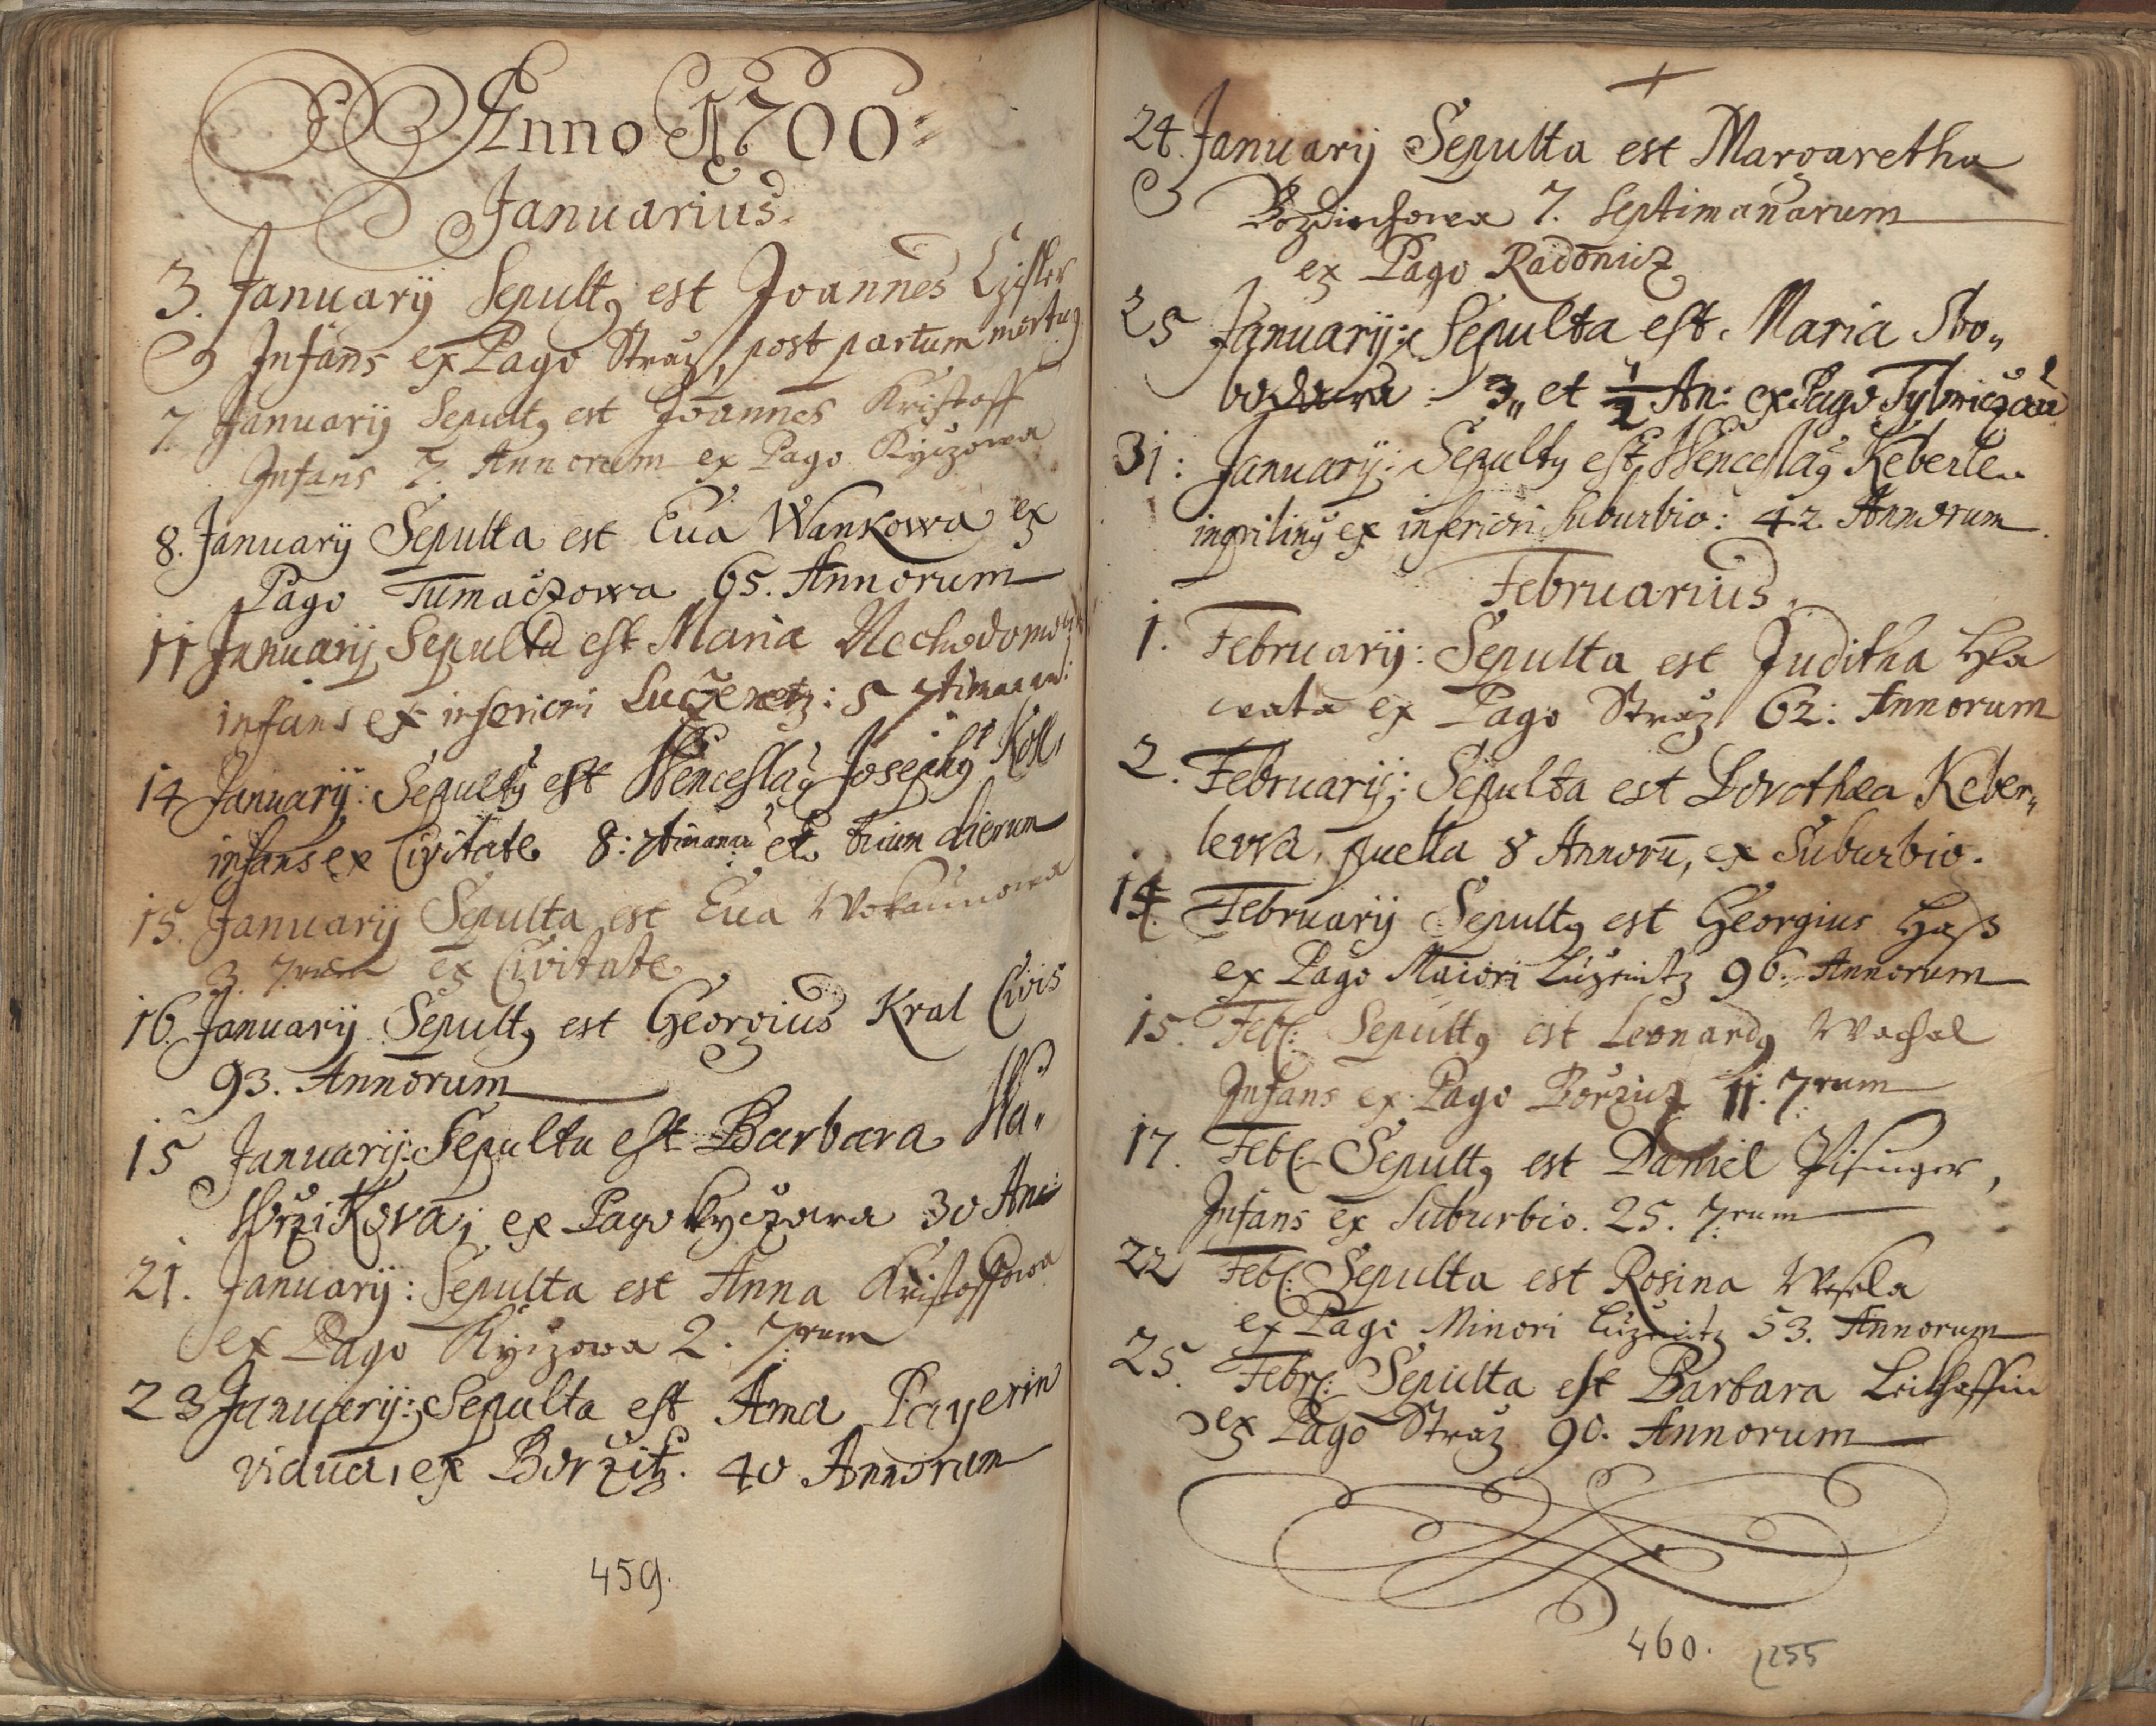 Anno 1700
Januarius.
3. Januarij Sepultꝰ est Joannes Czisler
Infans ex Pago Straz, post partum mortuꝰ
7. Januarij Sepultꝰ est Joannes Kristoff
Infans 7. Annorum ex Pago Kyczowa
8. Januarij Sepulta est Eua Wankowa ex
Pago Tumaczowa 65. Annorum
11 Januarij Sepulta est Maria Nechodomo
infans ex inferiori Luczenetz: 5
14 Januarij: Sepultꝰ est Wenceslaꝰ Josephꝰ Köll,
infans ex Civitate 8: et trium dierum
15. Januarij Sepulta est Eua Wokaunowa
3. 7.rum ex Civitate
16. Januarij Sepultꝰ est Georgius Kral Civis
93. Annorum
15 Januarij: Sepulta est Barbara Sla„
Worzikova; ex Pago kyczowa 30 An:
21. Januarij: Sepulta est Anna Kristoffowa
ex Pago Kyczowa 2. 7.rum
23 Januarij: Sepulta est Anna Payerin
vidua, ex Borzitz. 40 Annorum
459.
24. Januarij Sepulta est Margaretha
7. Septimanarum
ex Pago Radonicz
25 Januarij: Sepulta est. Maria Sbo„
3„ et 1/2 An: ex Pago
31: Januarij: Sepultꝰ est Wenceslaꝰ Keberle„
inqvilinꝰ ex inferiori suburbio: 42 Annorum.
Februarius.
1. Februarij: Sepulta est Juditha Hla
wata ex Pago Straz 62: Annorum
2. Februarij: Sepulta est Dorothea Keber„
lewa, puella 8 Annorū, ex Suburbio.
14. Februarij Sepultꝰ est Georgius Haß
ex Pago Maiori Luzenitz 96. Annorum
15. Feb: Sepultꝰ est Leonardꝰ Wachal
Infans ex Pago Borzicz 11. 7.rum
17. Feb: Sepultꝰ est Daniel Pisinger,
Infans ex Suburbio. 25. 7.rum
22 Feb: Sepulta est Rosina Wesela
ex Pago Minori Luzenitz 53. Annorum
25. Febr: Sepulta est Barbara
ex Pago Straz 90. Annorum
460. 255